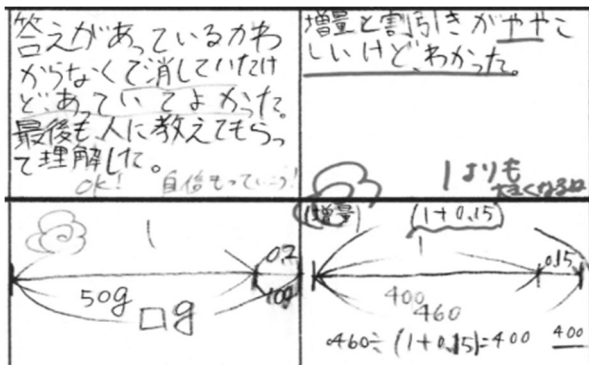 答えがあっているかわ
からなくて消していたけ
ど、あっていてよかった。
最後も人に教えてもらっ
て理解した。
OK! 自信もっていこう!
増量と割引きがややこ
しいけど、わかった。
1よりも
大きくなるね
1
0.2
50g
10g
□g
(増量)
(1+0.15)
1
0.15
400
460
460÷(1+0.15)=400 400